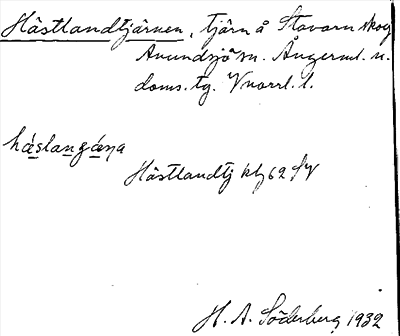 Hästlandtjärnen, tjärn å Stavarn skog
Anundsjö sn. Ångerml. n.
doms.tg. Vnorrl. l.
háslangána
Hästlandtj kbl 62 SV
H. A. Söderberg 1932